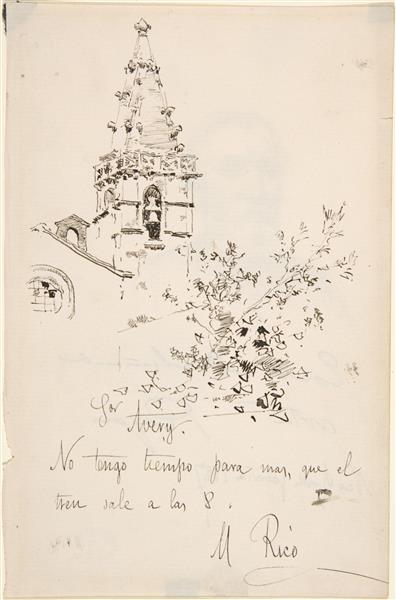 Sor
Avery.
No tengo tiempo para mas, que el
tren sale a las 8.
M Rico